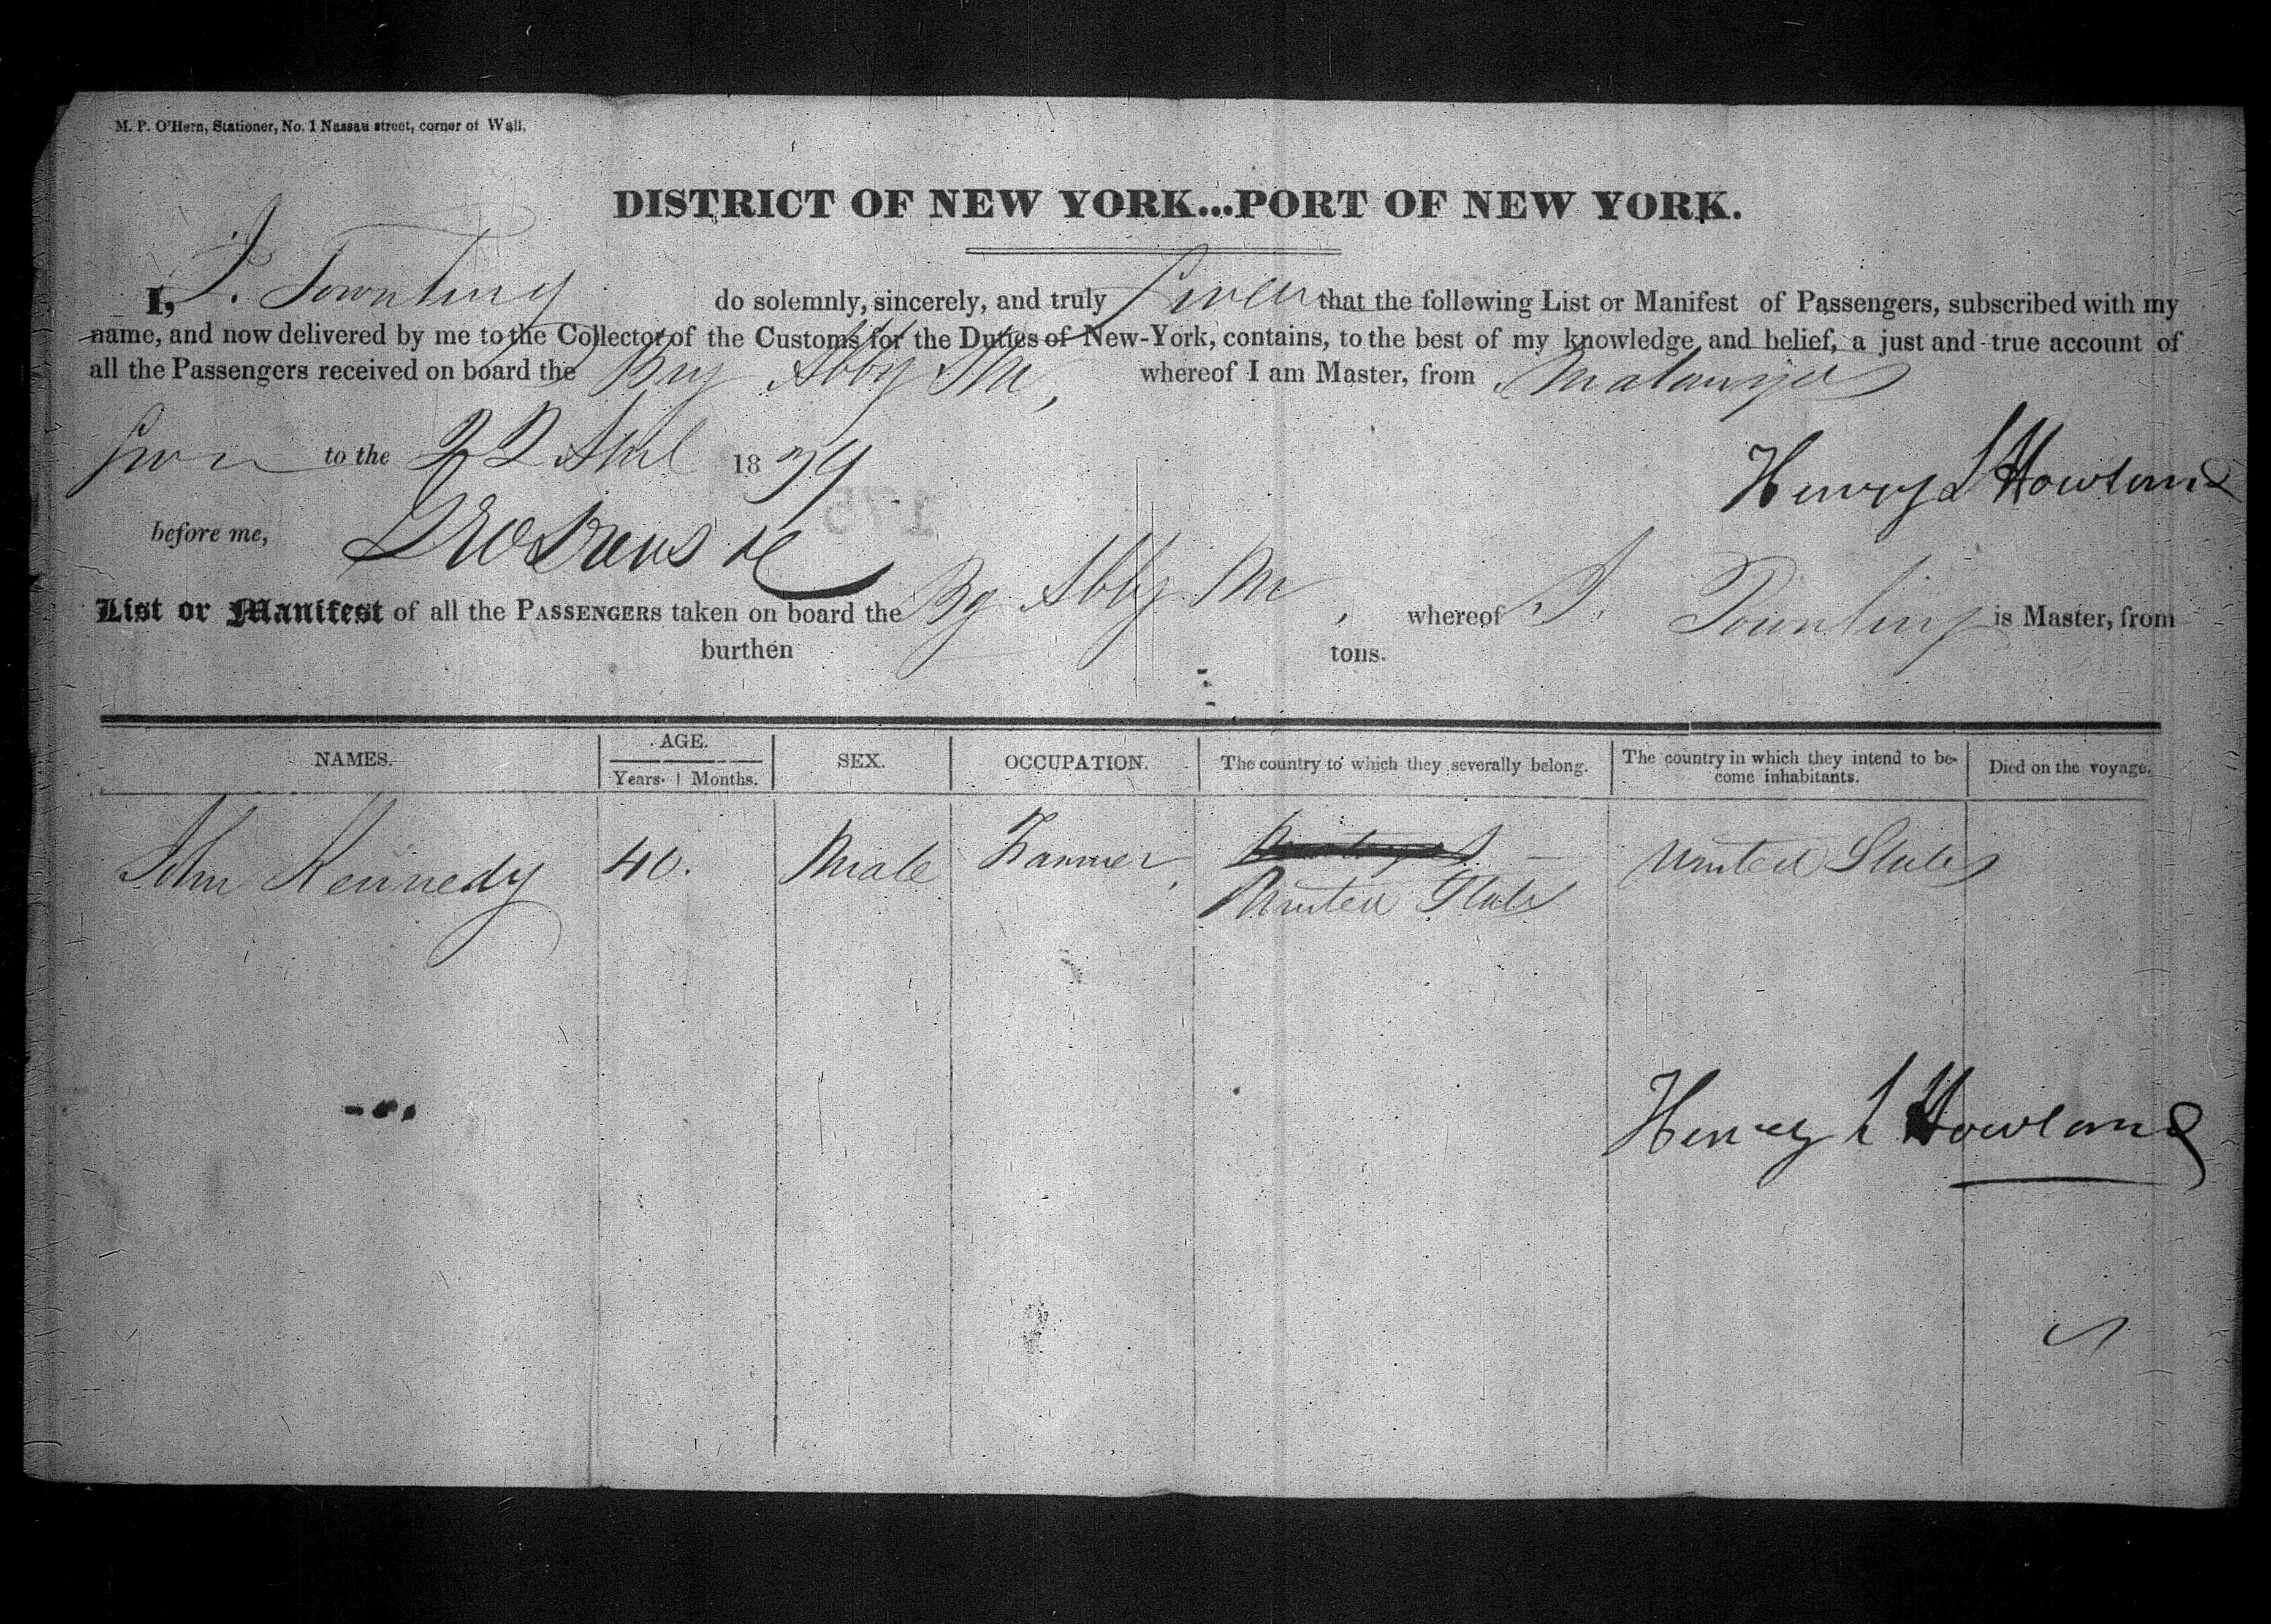 M. P. O'Hern, Stationer, No. 1 Nassau street, corner of Wall.
DISTRICT OF NEW YORK...PORT OF NEW YORK.
I, do solemnly, sincerely, and truly that the following List or Manifest of Passengers, subscribed with my
name, and now delivered by me to the Collector of the Customs for the Duties of New-York, contains, to the best of my knowledge and belief, a just and true account of
all the Passengers received on board the Brig Abby M, whereof I am Master, from Matanzas
to the 22 1839
Henry L Howland
before me,
List or Manifest of all the PASSENGERS taken on board the Bg Abby M, whereof is Master, from
burthen tons.
NAMES. AGE. Years. Months. SEX. OCCUPATION. The country to which they severally belong. The country in which they intend to become inhabitants. Died on the voyage.
John Kennedy 40. Male Farmer United States
United States
Henry L Howland